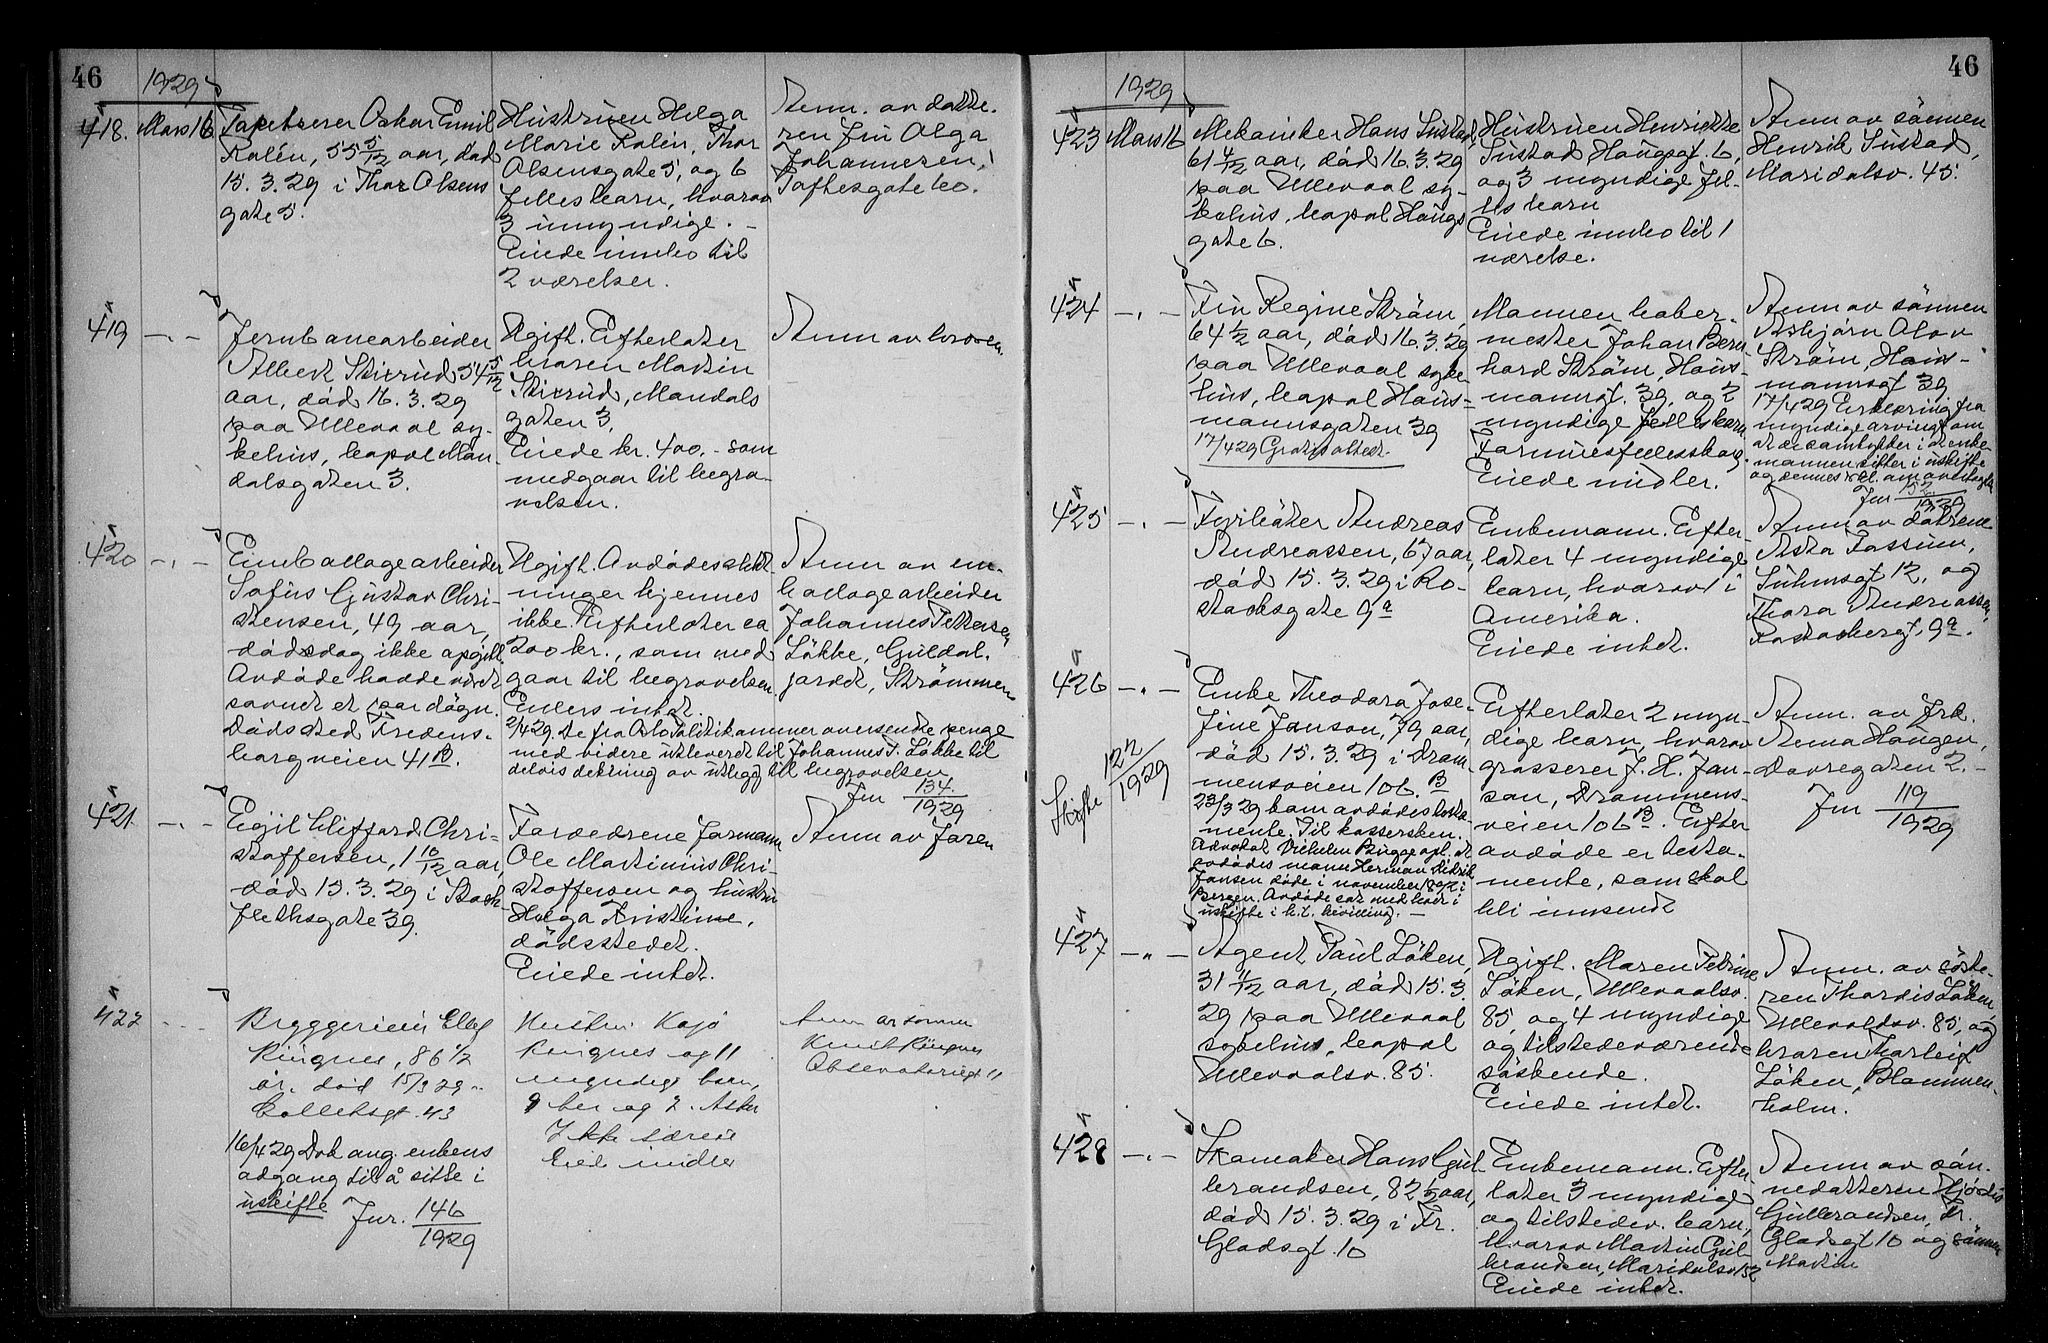 46
1929
418. Mars 16
Tapetserer Oskar Emil
Kalén, 55 5/12 aar, død
15.3.29 i Thor Olsens
gate 5.
Hustruen Helga
Marie Kalén, Thor
Olsensgate 5, og 6
fellesbarn, hvorav
3 umyndige. -
Eiede innbo til
2 værelser.
Anm. av datte-
ren fru Olga
Johannesen,
Toftesgate 60.
419 -„-
Jernbanearbeider
Albert Skirud 54 5/12
aar, død 16.3.29
paa Ullevaal sy-
kehus, bopal Man
dalsgaten 3.
Ugift. Efterlater
broren Martin
Skirud, Mandals
gaten 3.
Eiede kr. 400.- som
medgaar til begra-
velsen.
Anm av broren.
420 -„-
Emballagearbeider
Sofus Gustav Chri-
stensen, 49 aar,
dødsdag ikke opgitt
Avdøde hadde været
savnet et par døgn.
Dødssted Fredens-
borgveien 41 B.
Ugift. Avdødes slekt-
ninger kjennes
ikke. Efterlater ca
200 kr., som med
gaar til begravelsen.
Eiders intet.
Anm av em-
ballagearbeider
Johannes Pettersen
Løkke, Guldal.
jordet, Strømmen
2/4 29. De fra Oslo Politikammer oversendte penge
med videre utlevert til Johannes P. Løkke til
delvis dekning av utlegg til begravelsen.
Jnr 134/1929
421. -„-
Egil Cliffard Chri-
stoffersen, 1 10/12 aar,
død 15.3.29 i Stock-
flethsgate 39.
Foreldrene formann
Ole Martinius Chri-
stoffersen og hustru
Helga Kristine,
dødsstedet.
Eiede intet.
Anm av faren
422 -„-
Bryggerieier Ellef
Ringnes, 86 1/2
år, død 15/3 29 -
Collettsgt. 43
Hustru Kaja
Ringnes og 11
myndige barn,
9 her og 2 i Asker
Ikke særeie
Eiet midler
Anm av sønnen
Knut Ringnes
Observatoriegt 11
16/4 29 Dok ang. enkens
adgang til å sitte i
uskifte Jnr. 146/1929
46
1929
423 Mars 16
Mekaniker Hans Sustad,
61 4/12 aar, død 16.3.29
paa Ullevaal sy-
kehus, bopal Haugs
gate 6.
Hustruen Henriette
Sustad Haugsgt. 6,
og 3 myndige fel-
lesbarn
Eiede innbo til 1
værelse.
Anm av sønnen
Henrik Sustad,
Maridalsv. 45.
424 -„-
Fru Regine Strøm,
64 1/2 aar, død 16.3.29
paa Ullevaal syke
hus, bopal Haus-
mannsgaten 39
17/4 29 Gratisattest.
Mannen
mester Johan Bern-
hard Strøm, Haus-
mannsgt. 39, og 2
myndige fellesbarn
Formuesfellesskap.
Eiede midler.
Anm av sønnen
Asbjørn Olav
Strøm, Haus-
mannsgt 39
17/4 29 Erklæring fra
myndige arvinger om
at de samtykker i at enke-
mannen sitter i uskifte
og dennes
Jnr 152/1929
425 -„-
Fyrbøter Andreas
Andreassen, 67 aar,
død 15.3.29 i Ro-
stocksgate 9 a
Enkemann. Efter-
later 4 myndige
barn, hvorav 1 i
Amerika.
Eiede intet.
Anm av døtrene
Asta Fossum,
Suhmsgt 12, og
Thora Andreassen,
9 a.
426 -„-
Skifte 127/1929
Enke Theodora Jose-
fine Janson, 79 aar,
død 15.3.29 i Dram-
mensveien 106. B
23/3 29 kom avdødes testa-
mente. Til kassersken.
Advokat Vilhelm Bugge opl. at
avdødes mann Herman Didrik
Janson døde i november i
Bergen. Avdøde sat med boet i
uskifte i h.t. bevilling. -
Efterlater 2 myn-
dige barn, hvorav
grosserer J. H. Jan-
son, Drammens-
veien 106 B. Efter
avdøde er testa-
mente, som skal
bli innsendt
Anm. av frk.
Anna Haugen,
Dovregaten 2.-
Jnr 119/1929
427 -„-
Agent Paul Løken,
31 11/12 aar, død 15.3.
29 paa Ullevaal
sykehus, bopal
Ullevaalsv. 85.
Ugift. Moren Petrine
Løken, Ullevaalsv.
85, og 4 myndige
og tilstedeværende
søskende.
Eiede intet.
Anm. av søste-
ren Thordis Løken,
Ullevaldsv. 85, og
broren Thorleif
Løken, Blommen-
holm.
428 -„-
Skomaker Hans Gul-
brandsen, 82 1/2 aar,
død 15.3.29 i Fr.
Gladsgt. 10
Enkemann. Efter
later 3 myndige
og tilstedev. barn,
hvorav Martin Gul-
brandsen, Maridalsv 152
Eiede intet.
Anm av søn-
nedatteren Hjørdis
Gulbrandsen, Fr.
Gladsgt 10 og sønnen
Martin